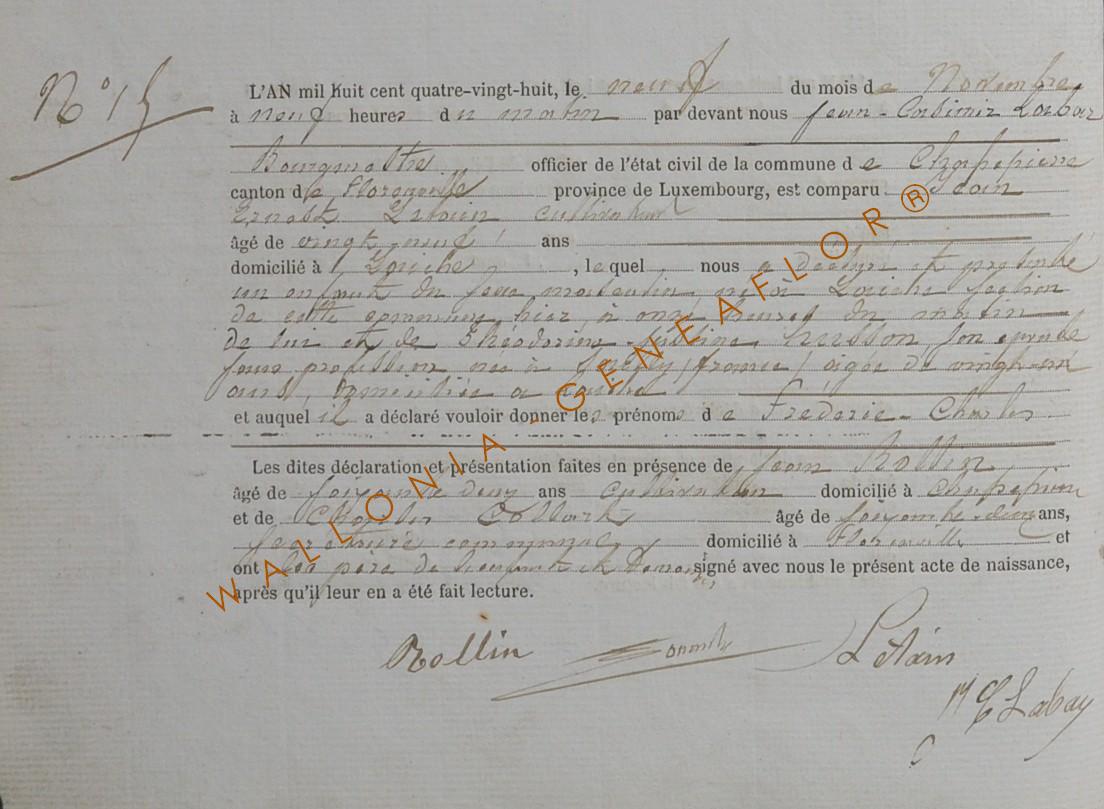 N° 15
L'AN mil huit cent quatre-vingt-huit, le neuf du mois de Novembre
à neuf heures du matin par devant nous Jean-Casimir Labay
Bourgmestre officier de l'état civil de la commune de Chassepierre
canton de Florenville province de Luxembourg, est comparu Jean
Ernest cultivateur
âgé de vingt neuf ans
domicilié à Laiche, lequel nous a déclaré et présenté
un enfant du sexe masculin, né à Laiche section
de cette commune, hier à onze heures du matin
de lui et de Husson, son épouse
sans profession née à (france) âgée de vingt-
ans, domiciliée à Laiche
et auquel il a déclaré vouloir donner les prénoms de Frédéric-Charles
Les dites déclaration et présentation faites en présence de Jean Rollin
âgé de soixante deux ans cultivateur domicilié à Chassepierre
et de Charles âgé de soixante-deux ans,
secrétaire communal domicilié à Florenville et
ont les père de l'enfant et témoins signé avec nous le présent acte de naissance,
après qu'il leur en a été fait lecture.
Rollin
Labay
WALLONIA-GENEAFLOR®